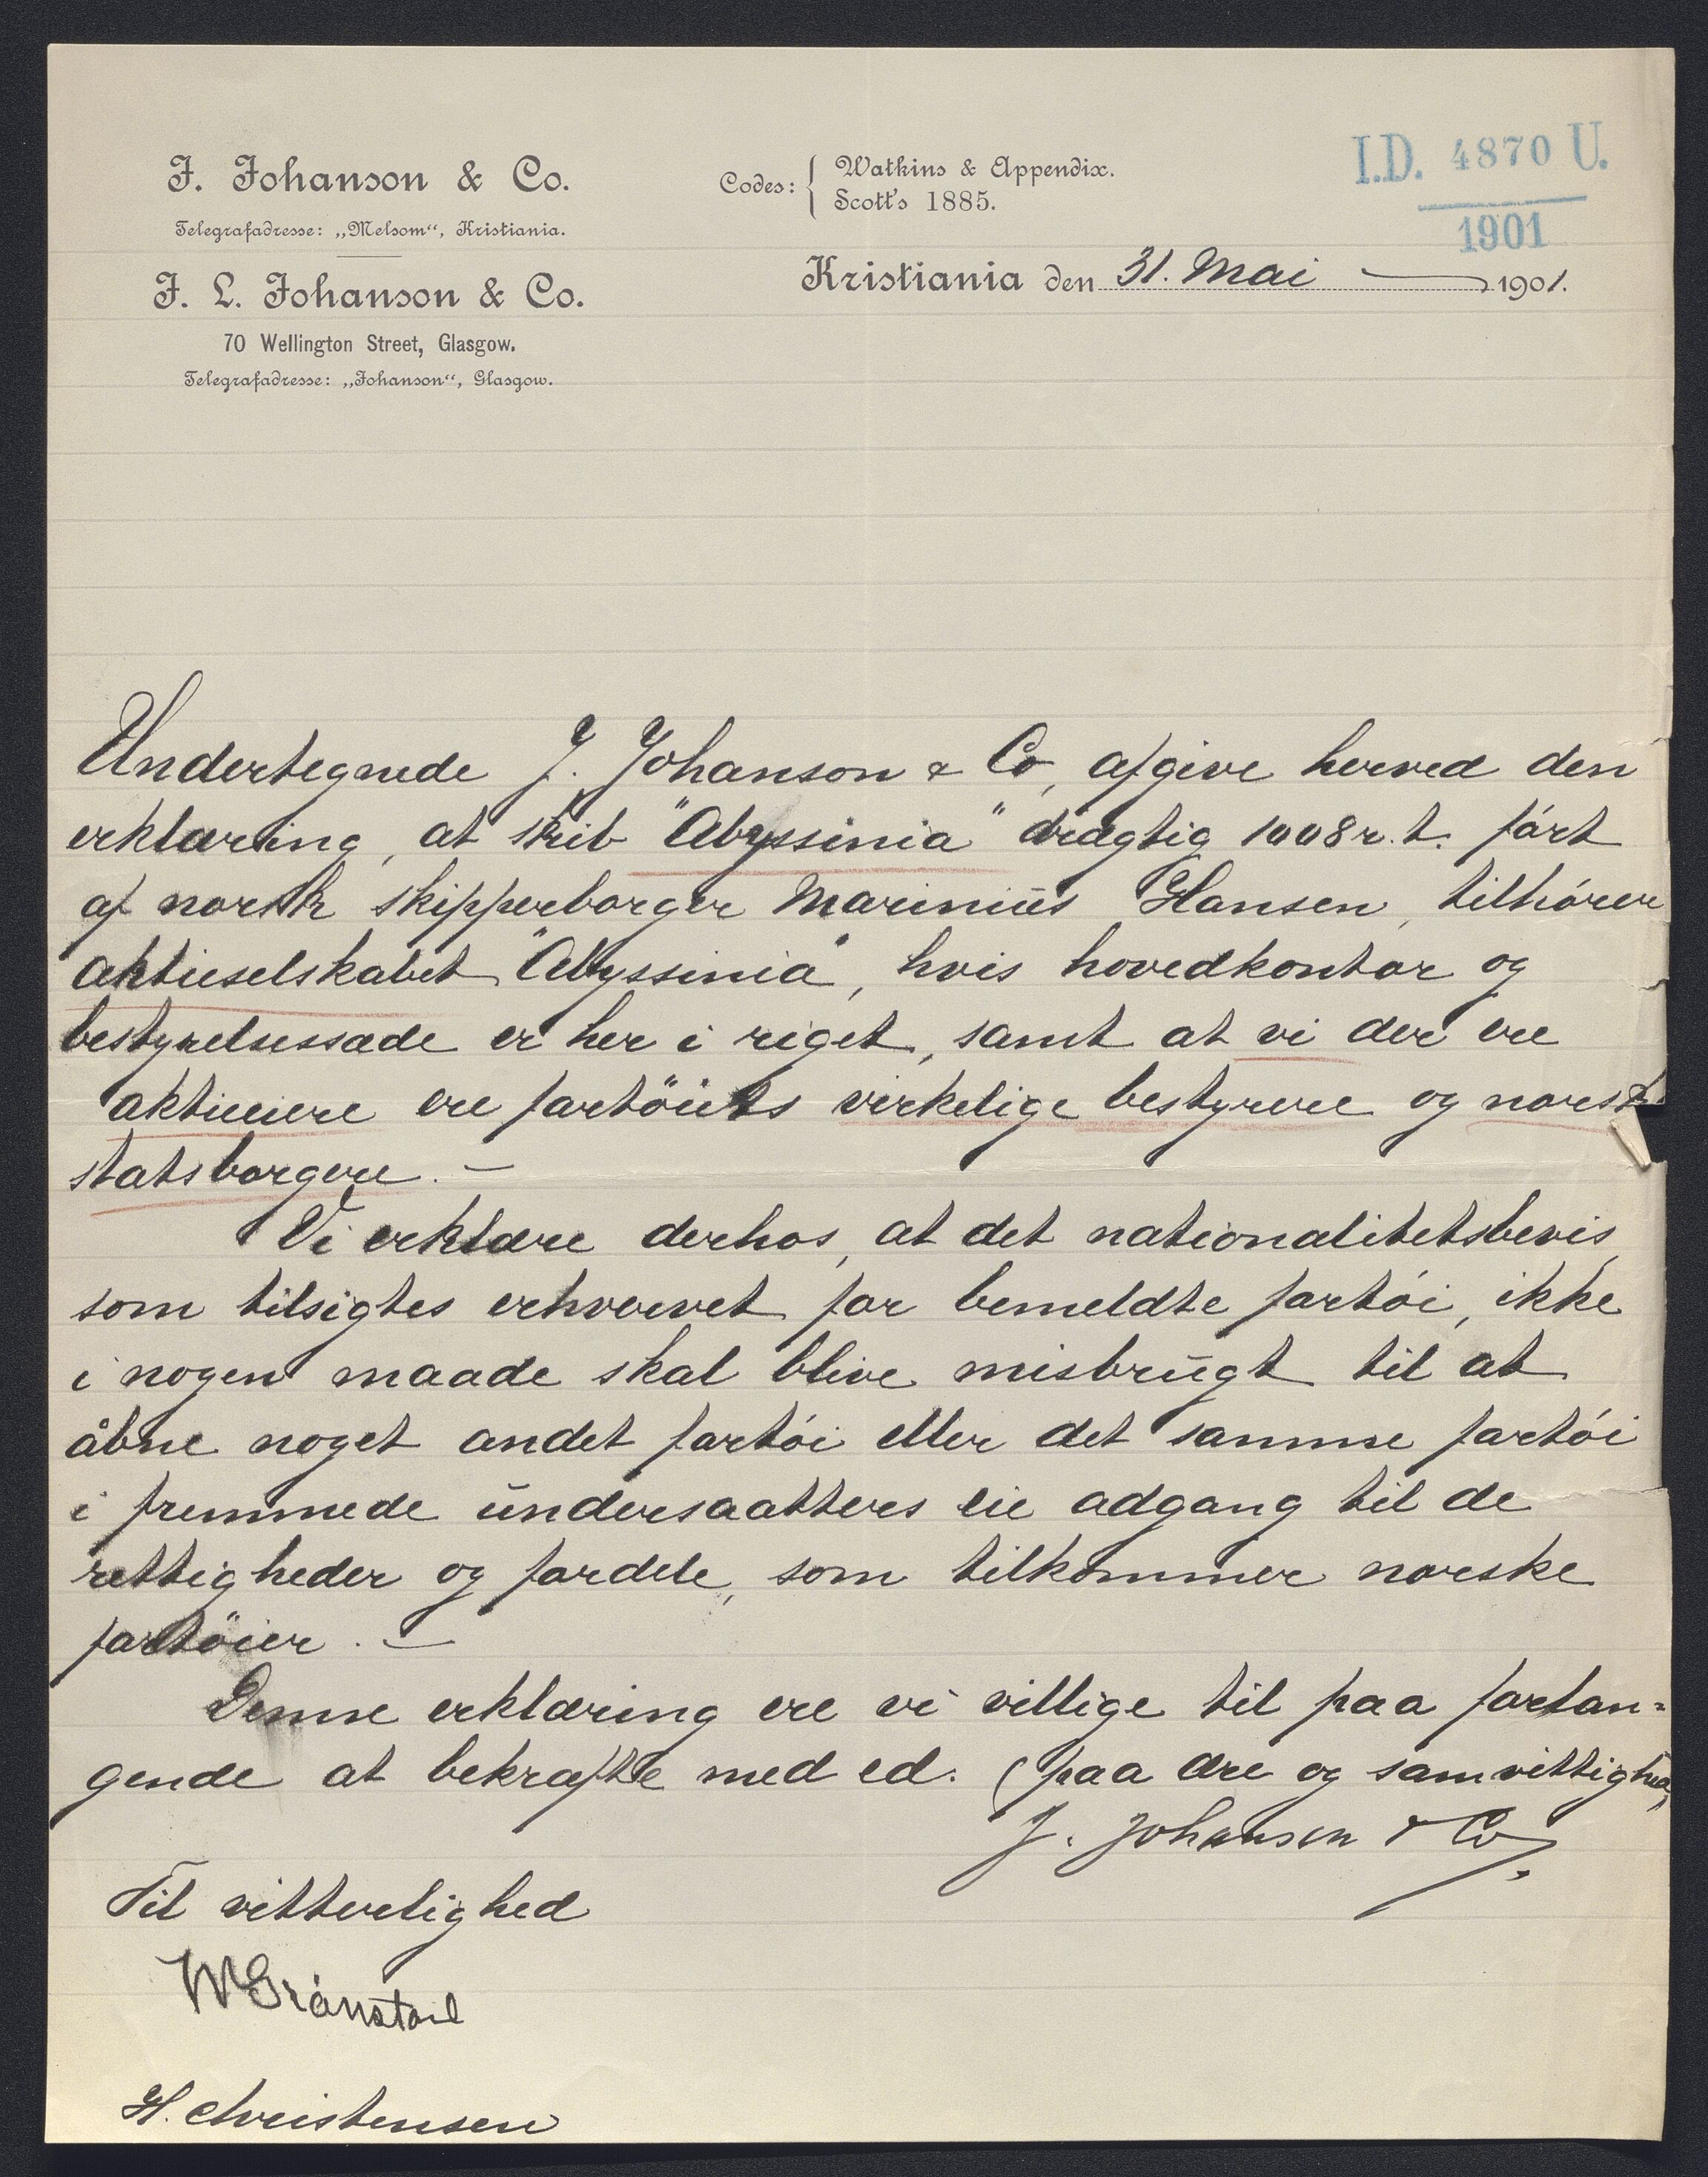 J. Johanson & Co.
Telegrafadresse: „Melsom“, Kristiania.
J. L. Johanson & Co.
70 Wellington Street, Glasgow.
Telegrafadresse: „Johanson“, Glasgow.
Codes: { Watkins & Appendix.
Scott's 1885.
I.D. 4870 U.
1901
Kristiania den 31. Mai 1901.
Undertegnede J. Johanson & Co, afgive herved den
erklæring, at skib "Abyssinia" drægtig 1008 r. t. ført
af norsk skipperborger Marinius Hansen, tilhører
aktieselskabet "Abyssinia", hvis hovedkontor og
bestyrelsessæde er her i riget, samt at vi der ere
aktieiere ere fartöiets virkelige bestyrere og norske
statsborgere. –
Vi erklære derhos, at det nationalitetsbevis,
som tilsigtes erhvervet for bemeldte fartói, ikke
i nogen maade skal blive misbrugt til at
åbne noget andet fartói eller det samme fartói
i fremmede undersaatteres eie adgang til de
rettigheder og fordele, som tilkommer norske
fartöier. –
Denne erklæring ere vi villige til paa forlan=
gende at bekræfte med ed. (paa ære og samvittighed)
J. Johanson & Co.
Til vitterlighed
H. Christensen